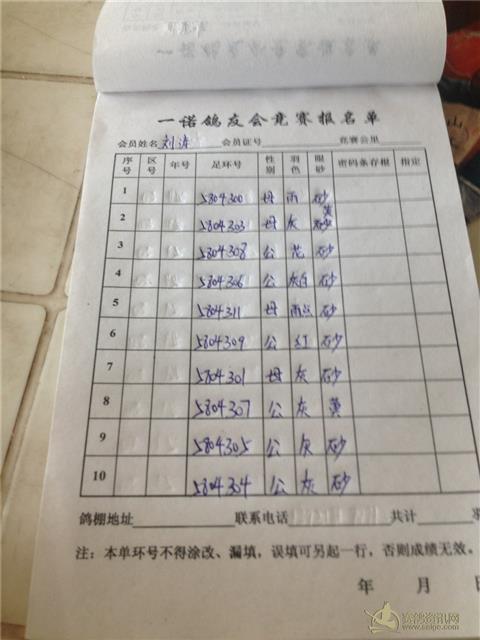 一诺鸽友会竞赛报名单
会员姓名 刘涛 会员证号 竞赛公里
序号 区号 年号 足环号 性别 羽色 眼砂 密码条存根 指定
1 5804300 母 雨 砂
2 5804303 母 灰 黄
3 5804308 公 花 砂
4 5804306 公 灰白 砂
5 5804311 母 雨点 砂
6 5804309 公 红 砂
7 5704301 母 灰 砂
8 5804307 公 灰 黄
9 5804305 公 灰 砂
10 5804304 公 灰 砂
鸽棚地址 联系电话 共计
注：本单环号不得涂改、漏填，误填可另起一行，否则成绩无效。
年 月 日
赛鸽资讯网
www.saige.com